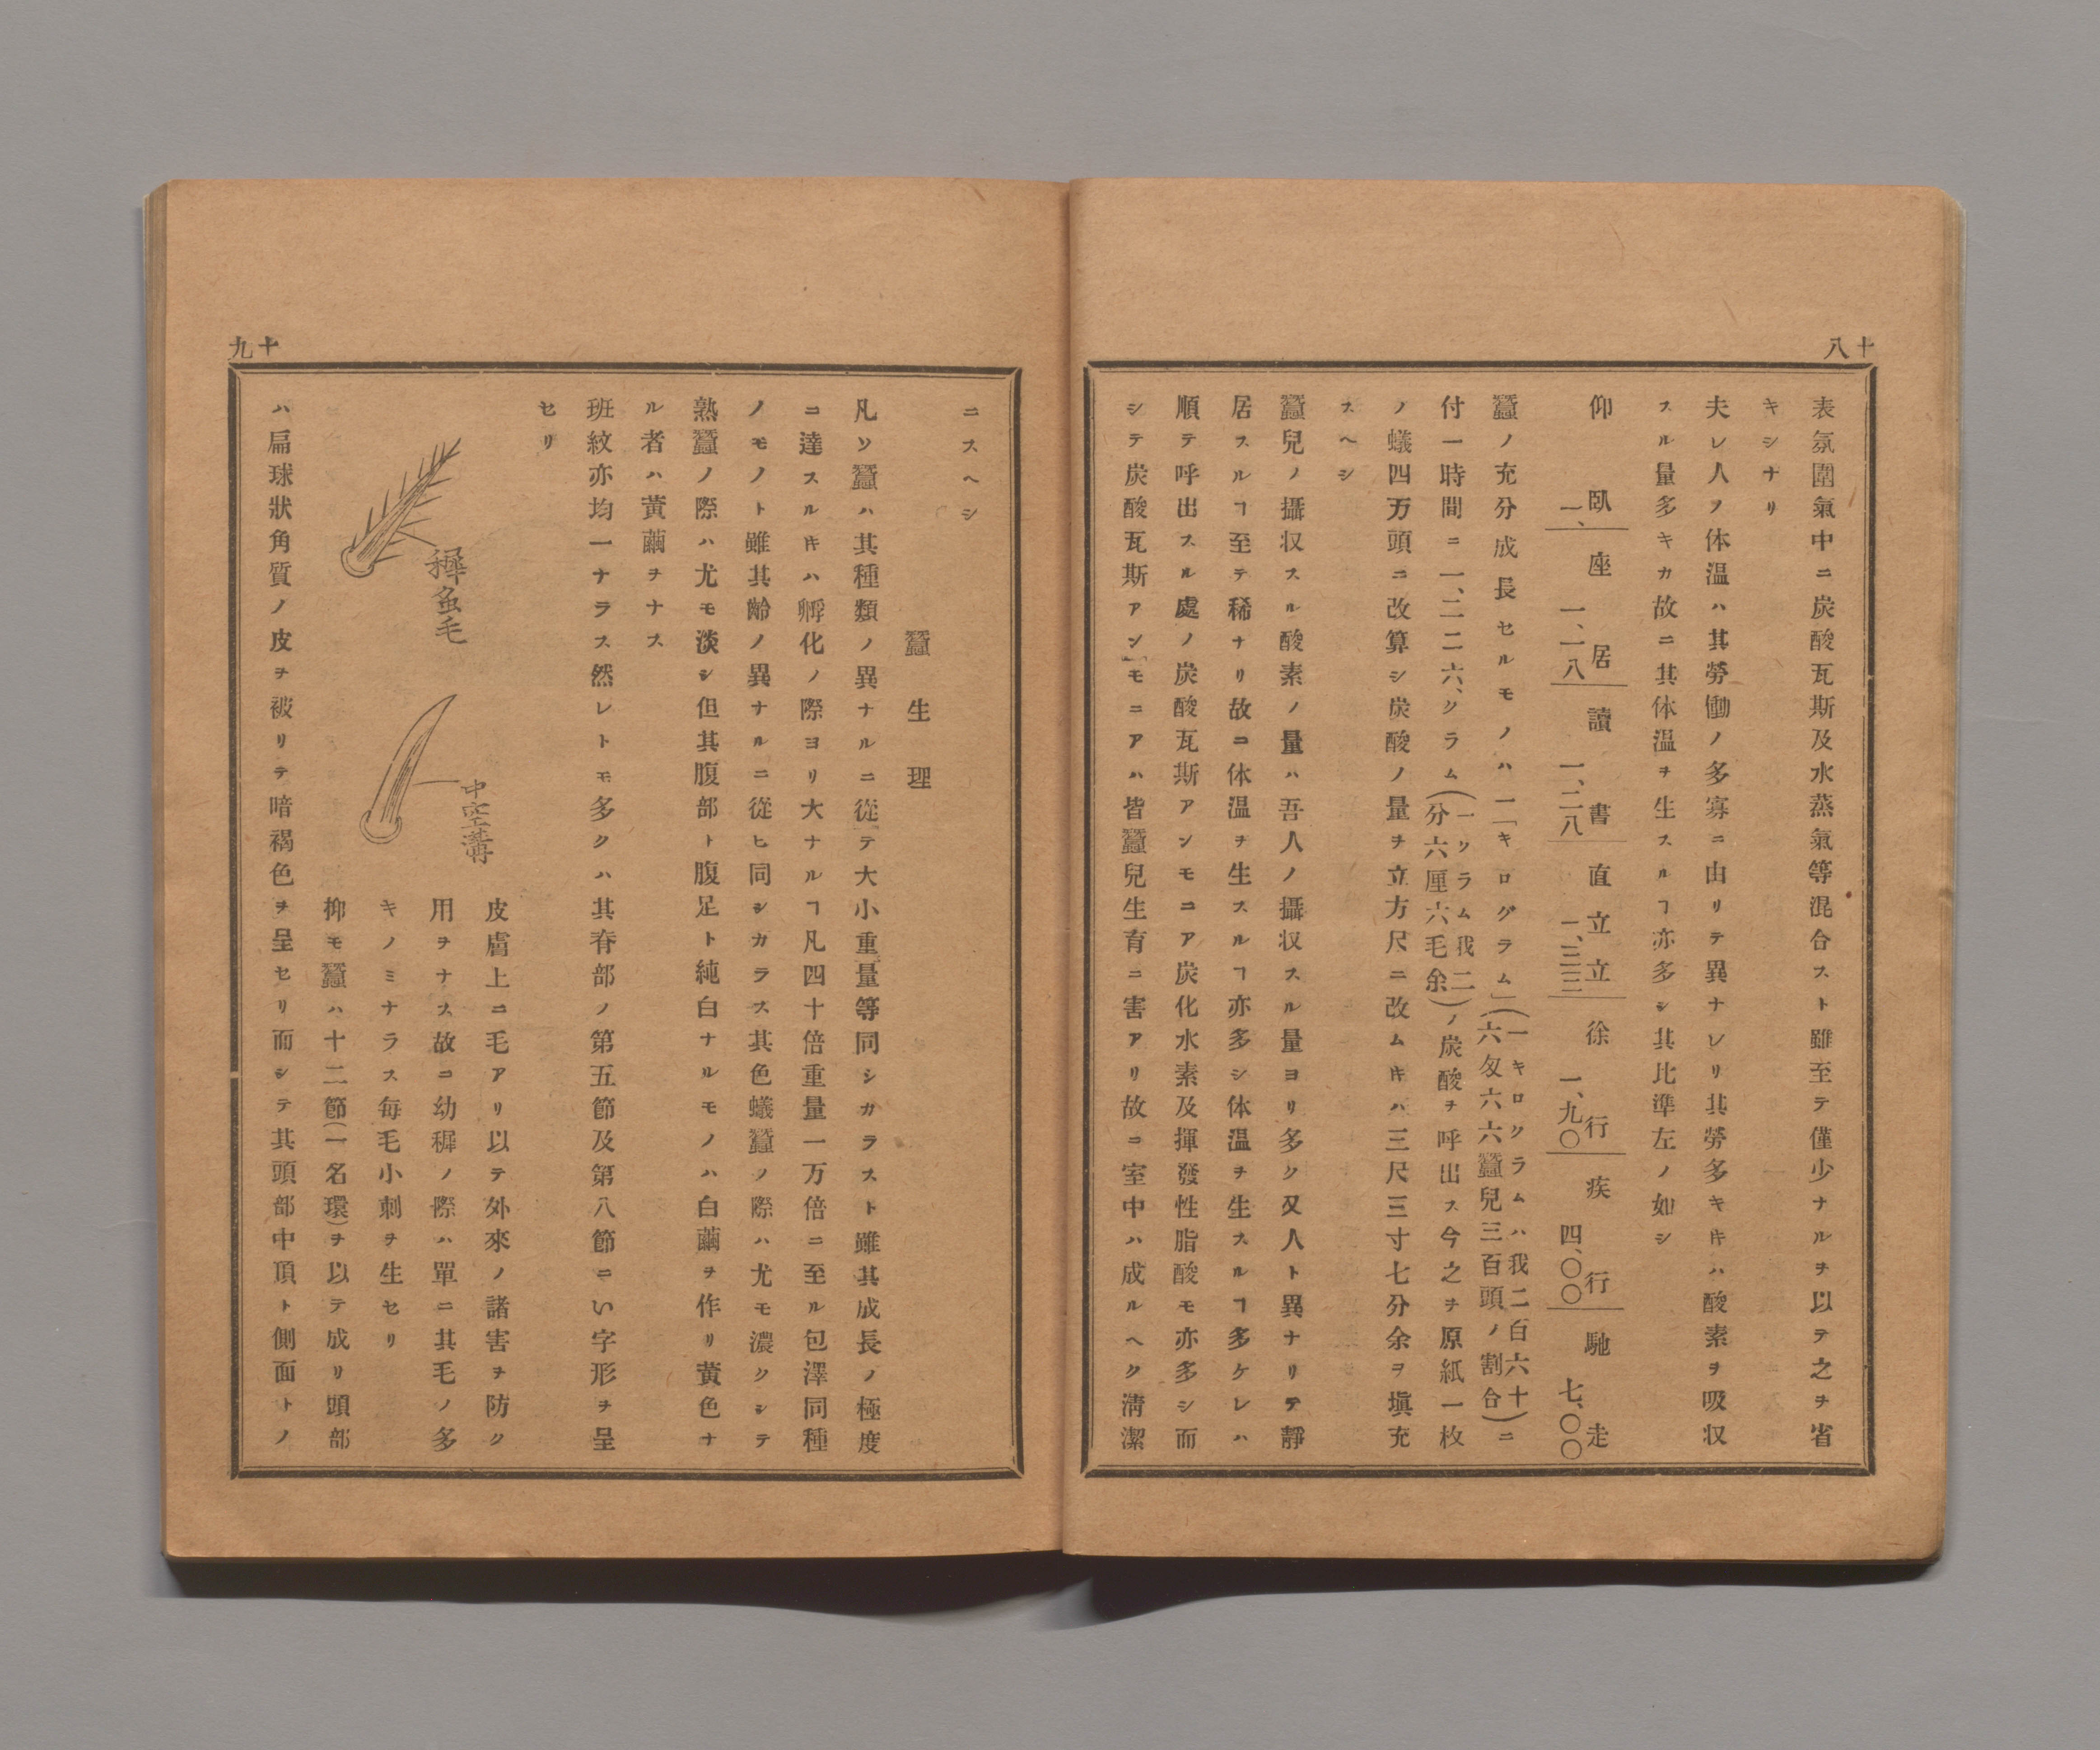 十八
表氛圍氣中ニ炭酸瓦斯及水蒸氣等混合スト雖至テ僅少ナルヲ以テ之ヲ省
キシナリ
夫レ人ヲ体温ハ其勞働ノ多寡ニ由リテ異ナレリ其勞多キ𪜈ハ酸素ヲ吸収
スル量多キカ故ニ其体温ヲ生スルヿ亦多シ其比準左ノ如シ
仰臥 座居 讀書 直立 立 徐行 疾行 馳走
一、 一、一八 一、二八 一、三三 一、九〇 四、〇〇 七、〇〇
蠶ノ充分成長セルモノハ一「キログラム」(一キロクラムハ我二百六十六匁六六蠶兒三百頭ノ割合)ニ
付一時間ニ一、二二六、クラム(一クラム我二分六厘六毛余)ノ炭酸ヲ呼出ス今之ヲ原紙一枚
ノ蟻四万頭ニ改算シ炭酸ノ量ヲ立方尺ニ改ム𪜈ハ三尺三寸七分余ヲ塡充
スヘシ
蠶兒ノ攝収スル酸素ノ量ハ吾人ノ攝収スル量ヨリ多ク又人ト異ナリテ靜
居スルヿ至テ稀ナリ故ニ体温ヲ生スルヿ亦多シ体温ヲ生スルヿ多ケレハ
順テ呼出スル處ノ炭酸瓦斯アンモニア炭化水素及揮發性脂酸モ亦多シ而
シテ炭酸瓦斯アン「モニアハ皆蠶兒生育ニ害アリ故ニ室中ハ成ルヘク淸潔
十九
ニスヘシ
蠶生理
凡ソ蠶ハ其種類ノ異ナルニ從「テ大小重量等同シカラスト雖其成長ノ極度
ニ達スル𪜈ハ孵化ノ際ヨリ大ナルヿ凡四十倍重量一万倍ニ至ル包澤同種
ノモノト雖其齡ノ異ナルニ從ヒ同シカラス其色蟻蠶ノ際ハ尤モ濃クシテ
熟蠶ノ際ハ尤モ淡シ但其腹部ト腹足ト純白ナルモノハ白繭ヲ作リ黃色ナ
ル者ハ黃繭ヲナス
班紋亦均一ナラス然レトモ多クハ其脊部ノ第五節及第八節ニい字形ヲ呈
セリ
穉蚕毛
中空溝
皮膚上ニ毛アリ以テ外來ノ諸害ヲ防ク
用ヲナス故ニ幼穉ノ際ハ單ニ其毛ノ多
キノミナラス每毛小刺ヲ生セリ
抑モ蠶ハ十二節(一名環)ヲ以テ成リ頭部
ハ扁球狀角質ノ皮ヲ被リテ暗褐色ヲ呈セリ而シテ其頭部中頂ト側面トノ